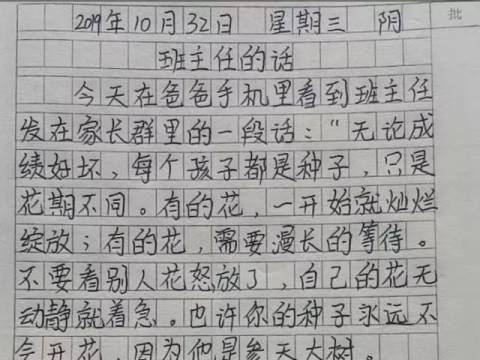 2019年10月32日 星期三 阴
批
班主任的话
今天在爸爸手机里看到班主任
发在家长群里的一段话："无论成
绩好坏，每个孩子都是种子，只是
花期不同。有的花，一开始就灿烂
绽放；有的花，需要漫长的等待。
不要看别人花怒放了，自己的花无
动静就着急。也许你的种子永远不
会开花，因为他是参天大树。